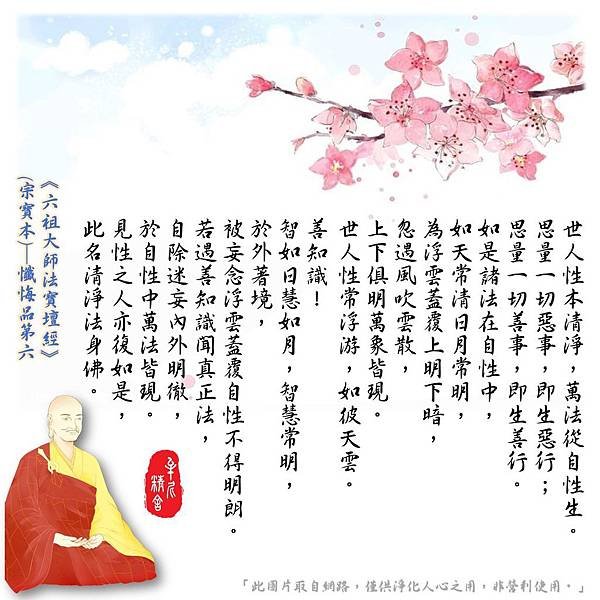 世人性本清淨，萬法從自性生。
思量一切惡事，即生惡行；
思量一切善事，即生善行。
如是諸法在自性中，
如天常清日月常明，
為浮雲蓋覆上明下暗，
忽遇風吹雲散，
上下俱明萬象皆現。
世人性常浮游，如彼天雲。
善知識！
智如日慧如月，智慧常明，
於外著境，
被妄念浮雲蓋覆自性不得明朗。
若遇善知識聞真正法，
自除迷妄內外明徹，
於自性中萬法皆現。
見性之人亦復如是，
此名清淨法身佛。
《六祖大師法寶壇經》
(宗寶本)—懺悔品第六
精舍
「此圖片取自網路，僅供淨化人心之用，非營利使用。」